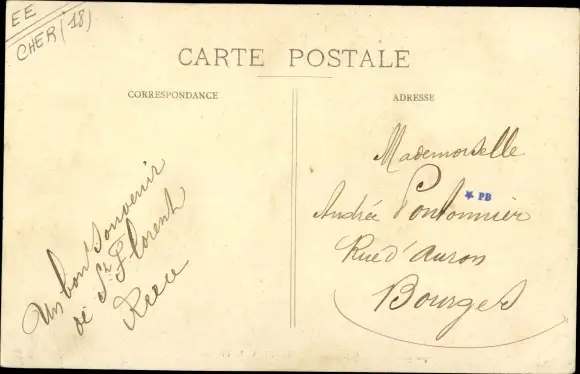 EE
CHER (18)
CARTE POSTALE
CORRESPONDANCE
ADRESSE
Un bon Souvenir
de St Florent
Mademoiselle
Andrée Pontonnier
PB
Rue d'Auron
Bourges